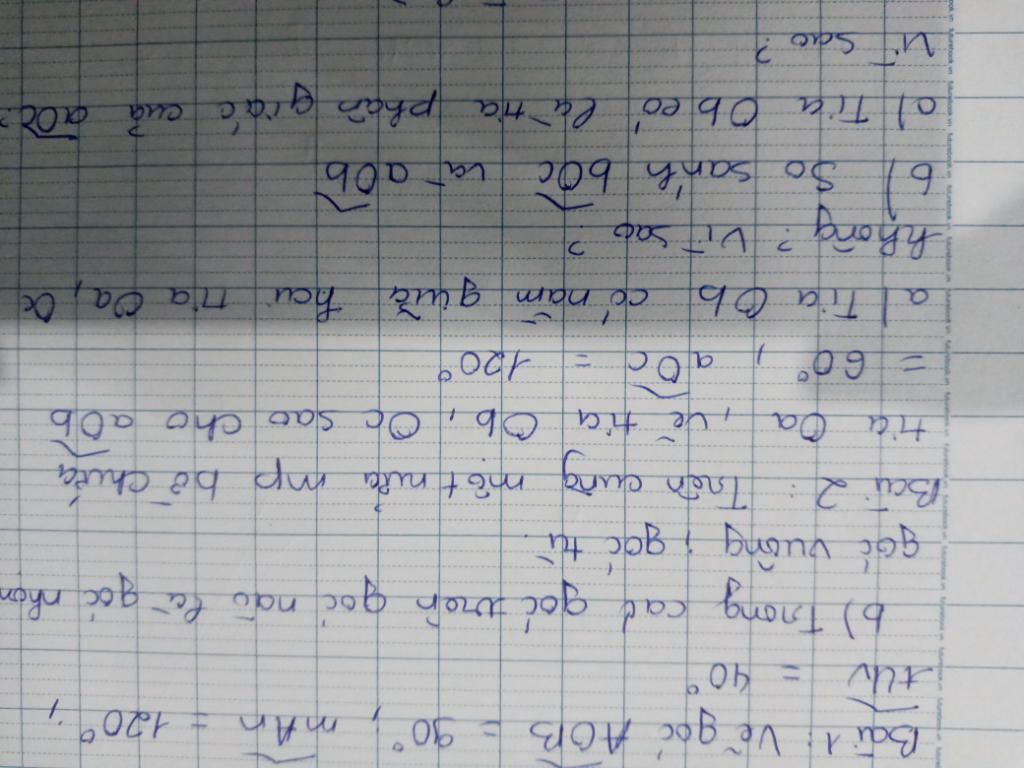 Bài 1: Vẽ góc AOB = 90°, mAn = 120°;
tUv = 40°
b) Trong các góc trên góc nào là góc nhọn
góc vuông, góc tù.
Bài 2: Trên cùng một nửa mp bờ chứa
tia Oa, vẽ tia Ob, Oc sao cho aOb
= 60°, aOc = 120°
a) Tia Ob có nằm giữa hai tia Oa, Oc
không? Vì sao?
b) So sánh bOc và aOb
c) Tia Ob có là tia phân giác của aOc?
Vì sao?